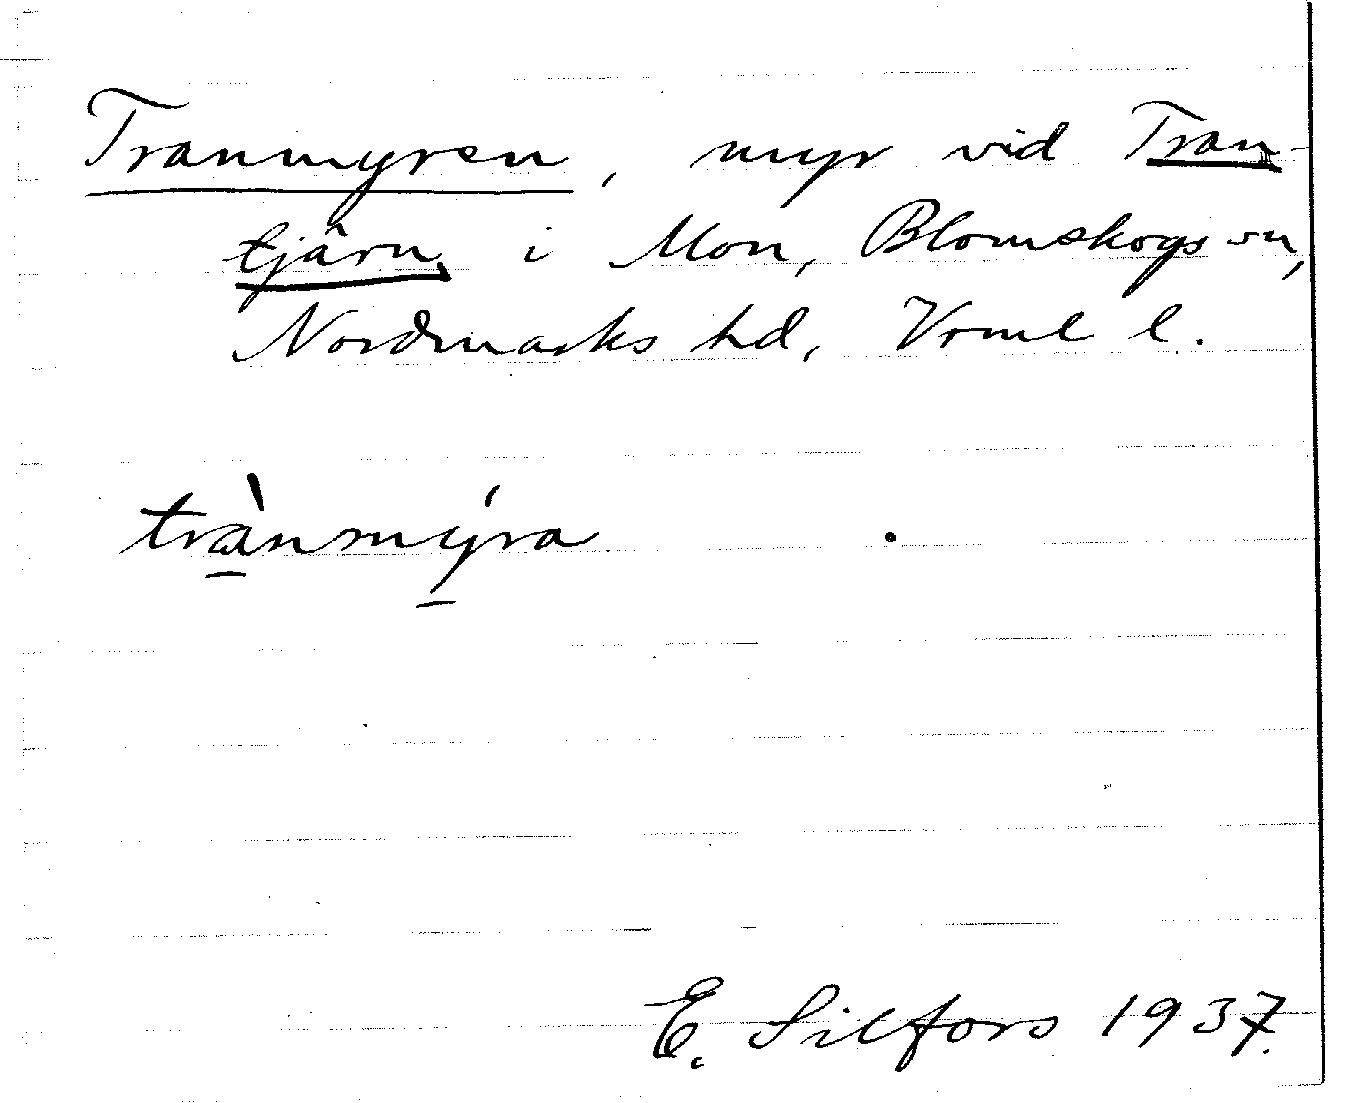 Tranmyren, myr vid Tran-
tjärn, i Mon, Blomskogs sn,
Nordmarks hd, Vrml l.
trànmýra
E. Silfors 1937.